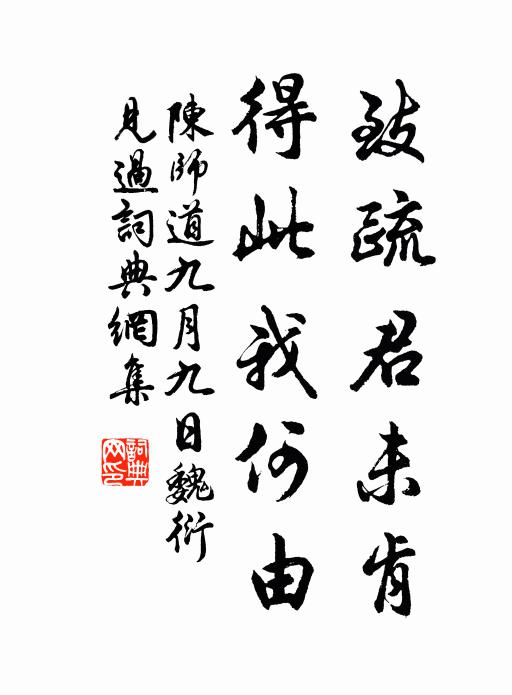 致疏君未肯
得此我何由
陳師道九月九日魏衍
見過詞典網集
詞典
网印